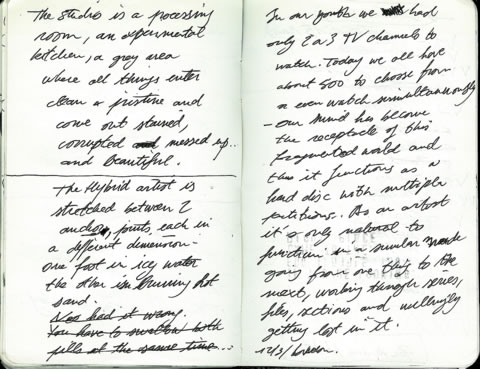 The studio is a processing
room, an experimental
kitchen, a grey area
where all things enter
clean & pristine and
come out stained,
corrupted and messed up..
and beautiful.
The Hybrid artist is
stretched between 2
anchor points, each in
a different dimension -
one foot in icy water
the other in burning hot
sand.
Neo had it wrong.
You have to swallow both
pills at the same time...
In our youths we had
only 2 or 3 TV channels to
watch. Today we all have
about 500 to choose from
or even watch simultaneously
- our mind has become
the receptacle of this
fragmented world and
thus it functions as a
hard disc with multiple
partitions. As an artist
it is only natural to
function in a similar mode
going from one thing to the
next, working through series,
files, sections and willingly
getting lost in it.
12/3/London.